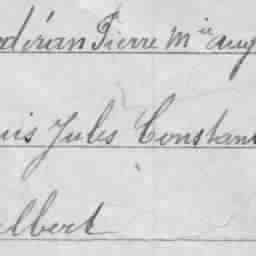 dérian Pierre Mie Aug
uis Jules Constan
lbert